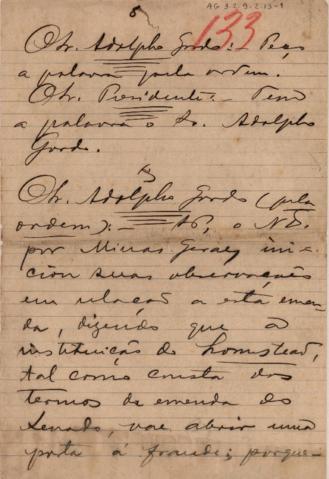 AG 3.2.9.2.13-1
133
O Sr. Adolpho Gordo: Peço
a palavra pela ordem.
O Sr. Presidente: – Tem
a palavra o Sr. Adolpho
Gordo.
O Sr. Adolpho Gordo (pela
ordem): – o N.D.
por Minas Geraes ini-
ciou suas observações
em relação a esta emen-
da, dizendo que a
instituição do homestead,
tal como consta dos
termos da emenda do
Senado, vae abrir uma
porta á fraude; porque-